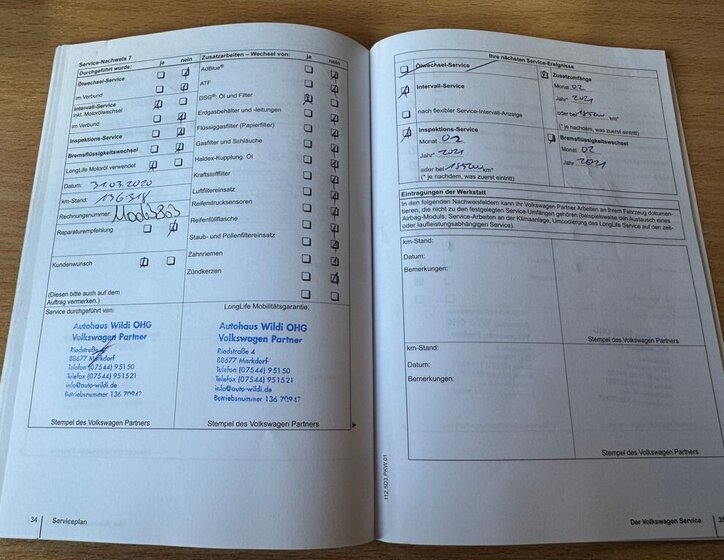 Service-Nachweis 7
Durchgeführt wurde: ja nein
Ölwechsel-Service
im Verbund
Intervall-Service
inkl. Motorölwechsel
im Verbund
Inspektions-Service
Bremsflüssigkeitswechsel
LongLife Motoröl verwendet
Datum: 31.03.2020
km-Stand: 136318
Rechnungsnummer:
Reparaturempfehlung
Kundenwunsch
(Diesen bitte auch auf dem
Auftrag vermerken.)
Service durchgeführt von:
Autohaus Wildi OHG
Volkswagen Partner
Riedstraße 4
88677 Markdorf
Telefon (07544) 95150
Telefax (07544) 951521
info@auto-wildi.de
Betriebsnummer 136 70942
Stempel des Volkswagen Partners
Zusatzarbeiten – Wechsel von: ja nein
AdBlue®
ATF
DSG®: Öl und Filter
Erdgasbehälter und -leitungen
Flüssiggasfilter (Papierfilter)
Gasfilter und Schläuche
Haldex-Kupplung: Öl
Kraftstofffilter
Luftfiltereinsatz
Reifendrucksensoren
Reifenfüllflasche
Staub- und Pollenfiltereinsatz
Zahnriemen
Zündkerzen
LongLife Mobilitätsgarantie:
Autohaus Wildi OHG
Volkswagen Partner
Riedstraße 4
88677 Markdorf
Telefon (07544) 95150
Telefax (07544) 951521
info@auto-wildi.de
Betriebsnummer 136 70942
Stempel des Volkswagen Partners
34 Serviceplan
Ihre nächsten Service-Ereignisse
Ölwechsel-Service
Intervall-Service
nach flexibler Service-Intervall-Anzeige
Inspektions-Service
Monat 02
Jahr* 2021
oder bei km*
(* je nachdem, was zuerst eintritt)
Zusatzumfänge
Monat 02
Jahr* 2021
oder bei km*
(* je nachdem, was zuerst eintritt)
Bremsflüssigkeitswechsel
Monat 02
Jahr 2021
Eintragungen der Werkstatt
In den folgenden Nachweisfeldern kann Ihr Volkswagen Partner Arbeiten an Ihrem Fahrzeug dokumen-
tieren, die nicht zu den festgelegten Service-Umfängen gehören (beispielsweise den Austausch eines
Airbag-Moduls, Service-Arbeiten an der Klimaanlage, Umcodierung des LongLife Service auf den zeit-
oder laufleistungsabhängigen Service).
km-Stand:
Datum:
Bemerkungen:
Stempel des Volkswagen Partners
km-Stand:
Datum:
Bemerkungen:
Stempel des Volkswagen Partners
112.5D3.PKW.01
Der Volkswagen Service 35